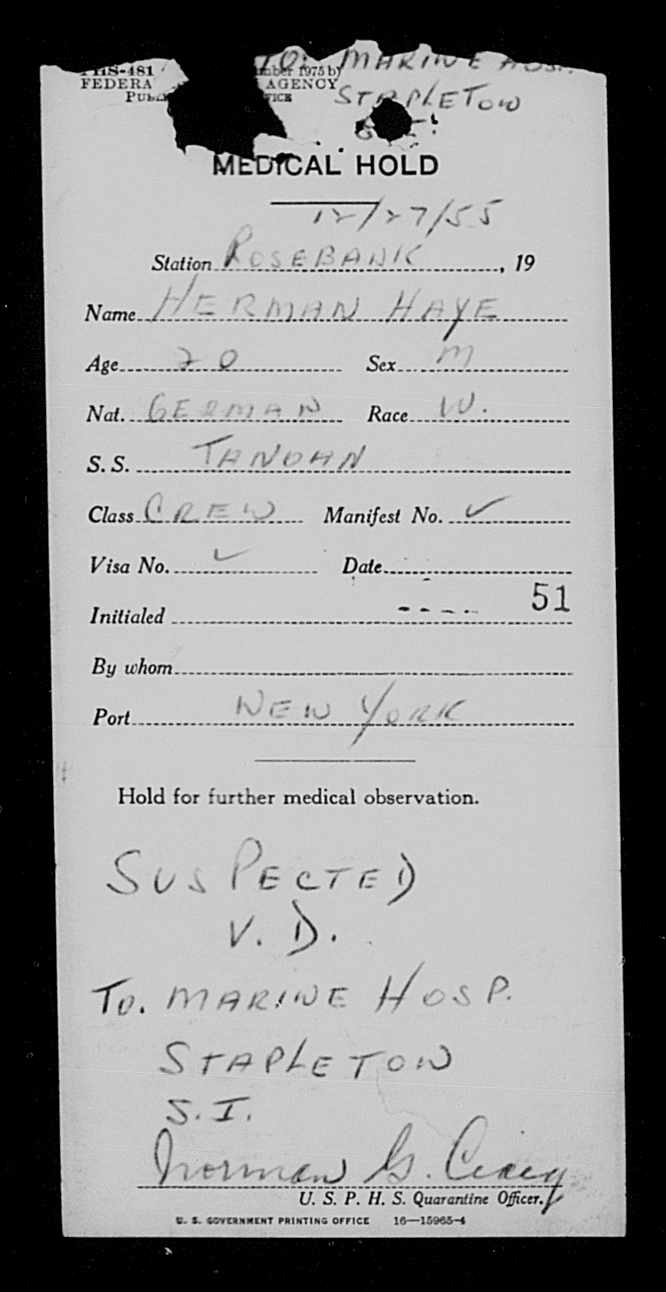 TO. MARINE HOSP.
PHS-481
FEDERA AGENCY
STAPLETON
S.I.
MEDICAL HOLD
12/27/55
Station ROSEBANK, 19
Name HERMAN HAYE
Age 20 Sex M
Nat. GERMAN Race W.
S. S.
Class CREW Manifest No. ✓
Visa No. ✓ Date
51
Initialed
By whom
Port NEW YORK
Hold for further medical observation.
SUSPECTED
V. D.
To. MARINE HOSP.
STAPLETON
S.I.
Norman G.
U. S. P. H. S. Quarantine Officer.
U. S. GOVERNMENT PRINTING OFFICE 16—15965-4